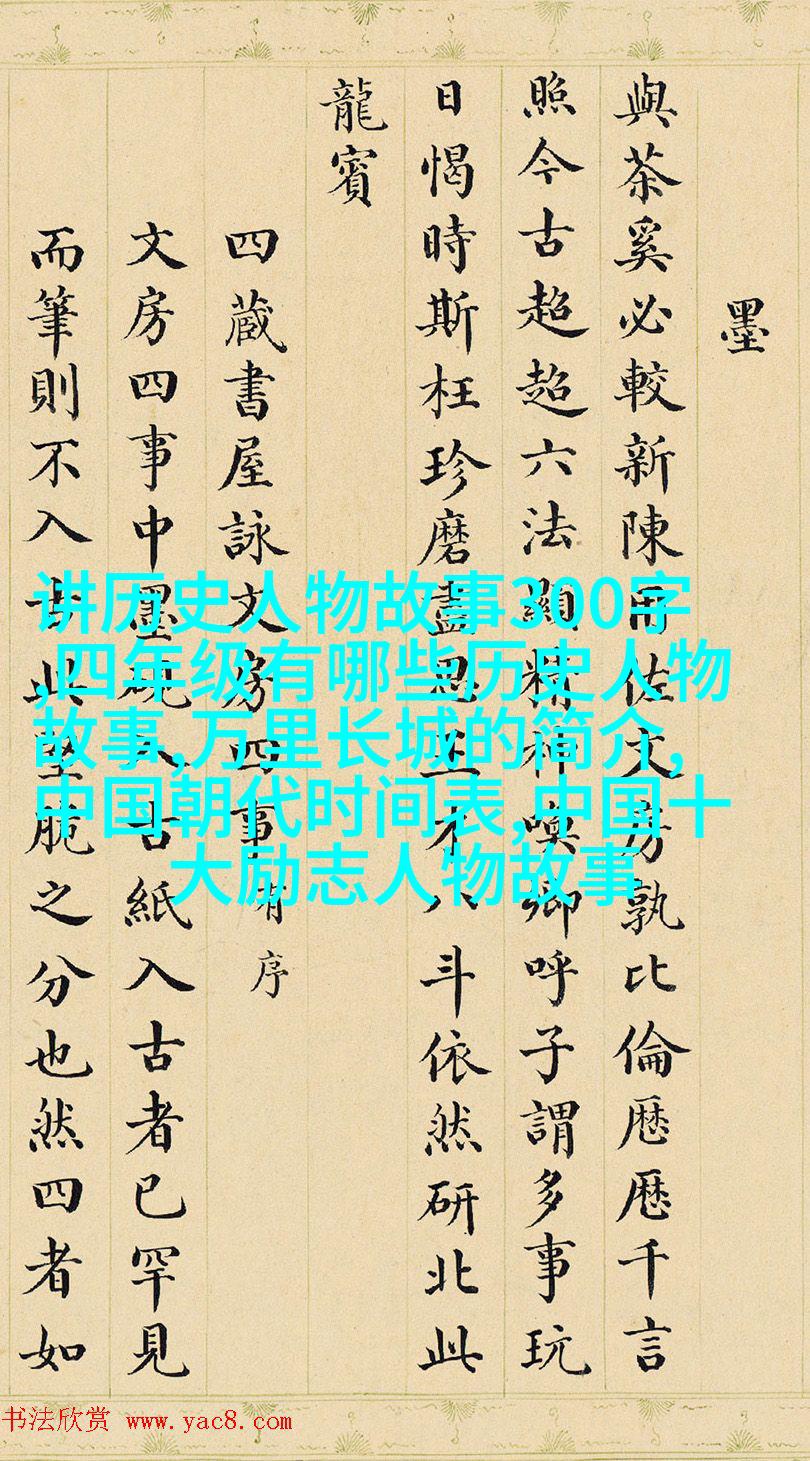 墨
與茶奚必較新陳用佐文房孰比倫歷歷千言
照今古超超六法顯精神喚卿呼子謂多事玩
日愒時斯枉珍磨盡思王才八斗依然研北此
龍賓
四蔵書屋詠文房四事有序
文房四事中墨硯入古紙入古者已罕見
而筆則不入古此堅脆之分也然四者如
讲历史人物故事300字
,四年级有哪些历史人物
故事,万里长城的简介,
中国朝代时间表,中国十
大励志人物故事
书法欣赏 www.yac8.com